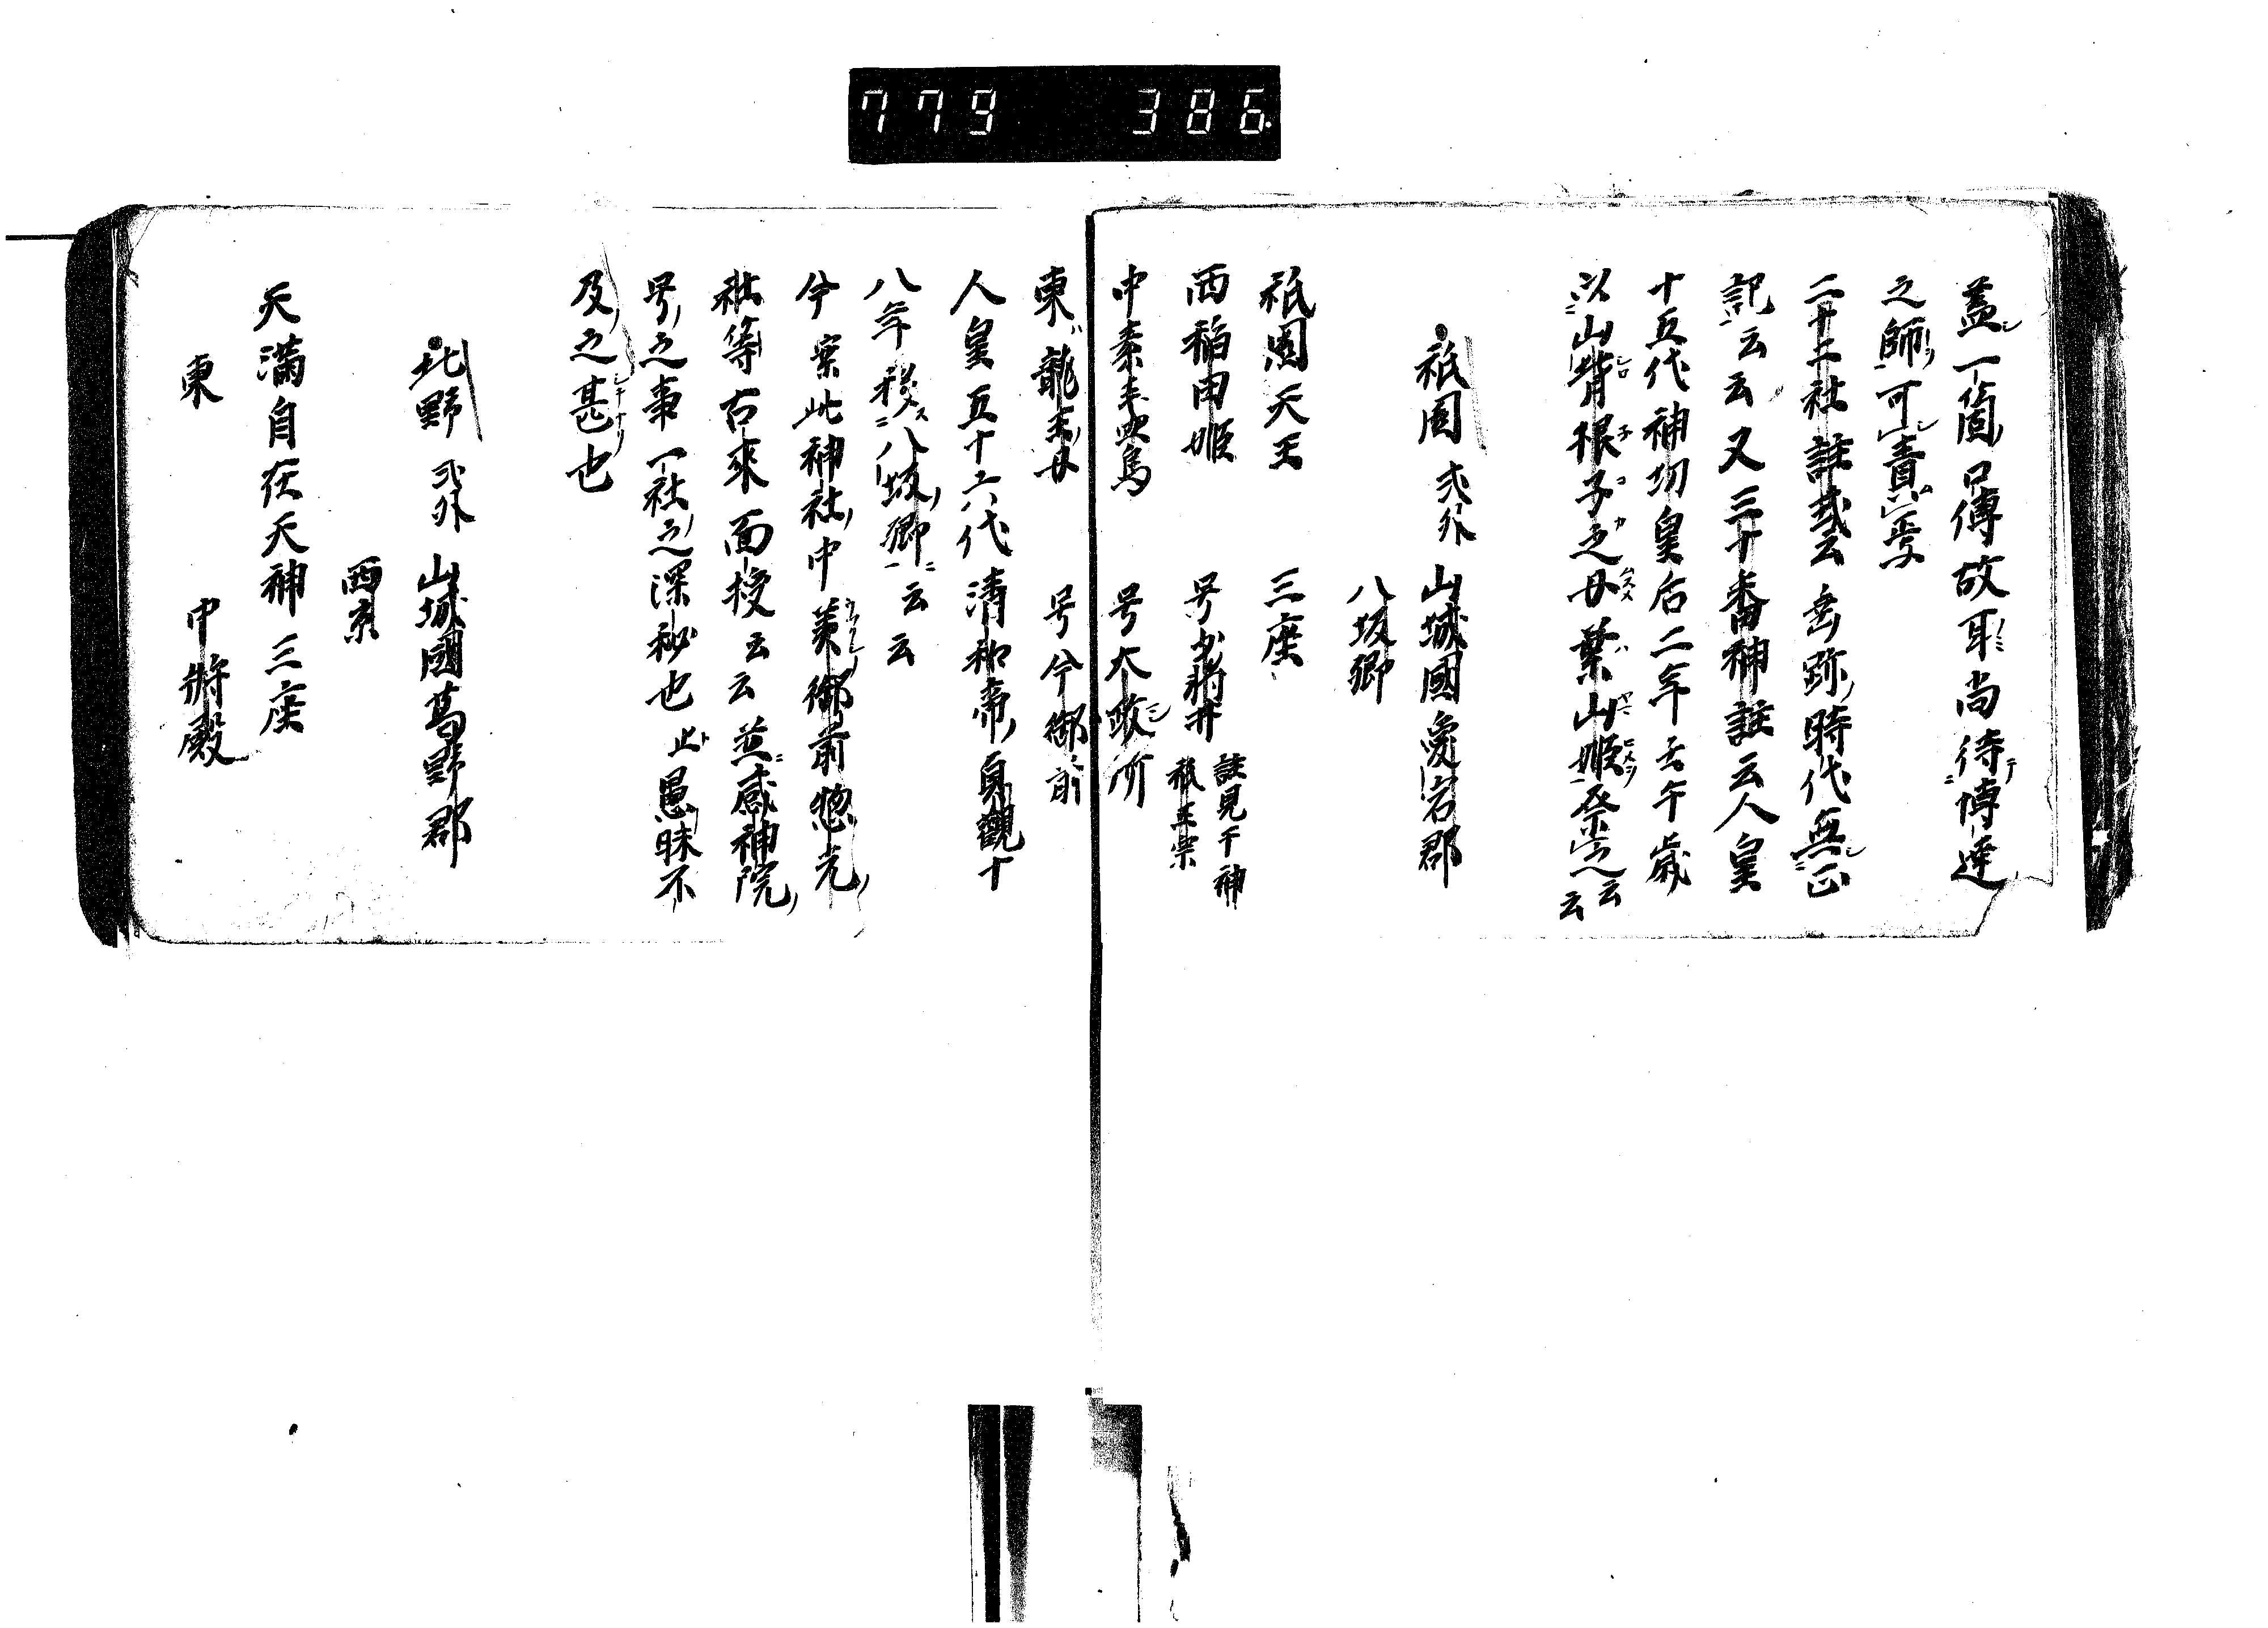 779 386
蓋一箇口傳故耳尚待博達
之師可責焉
二十二社註或云垂跡時代無正
記云云又三十番神註云人皇
十五代神功皇后二年壬午歳
以山背根子之女葉山姫祭之云云
祇園 式外 山城國愛宕郡
八坂郷
祇園天王 三座
西稲田姫 号少将井 註見千神祇王宗
中素盞烏 号大政所
東龍王女 号今御前
人皇五十六代清和帝貞觀十
八年移八坂郷云云
今案此神社中美御前惣光
社等古來面授云云並感神院
号之事一社之深秘也 此愚昧不
及之甚也
北野 式外 山城國葛野郡
西京
天滿自在天神三座
東 中將殿